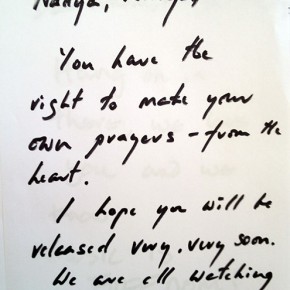 You have the
right to make your
own prayers - from the
heart.
I hope you will be
released very, very soon.
We are all watching